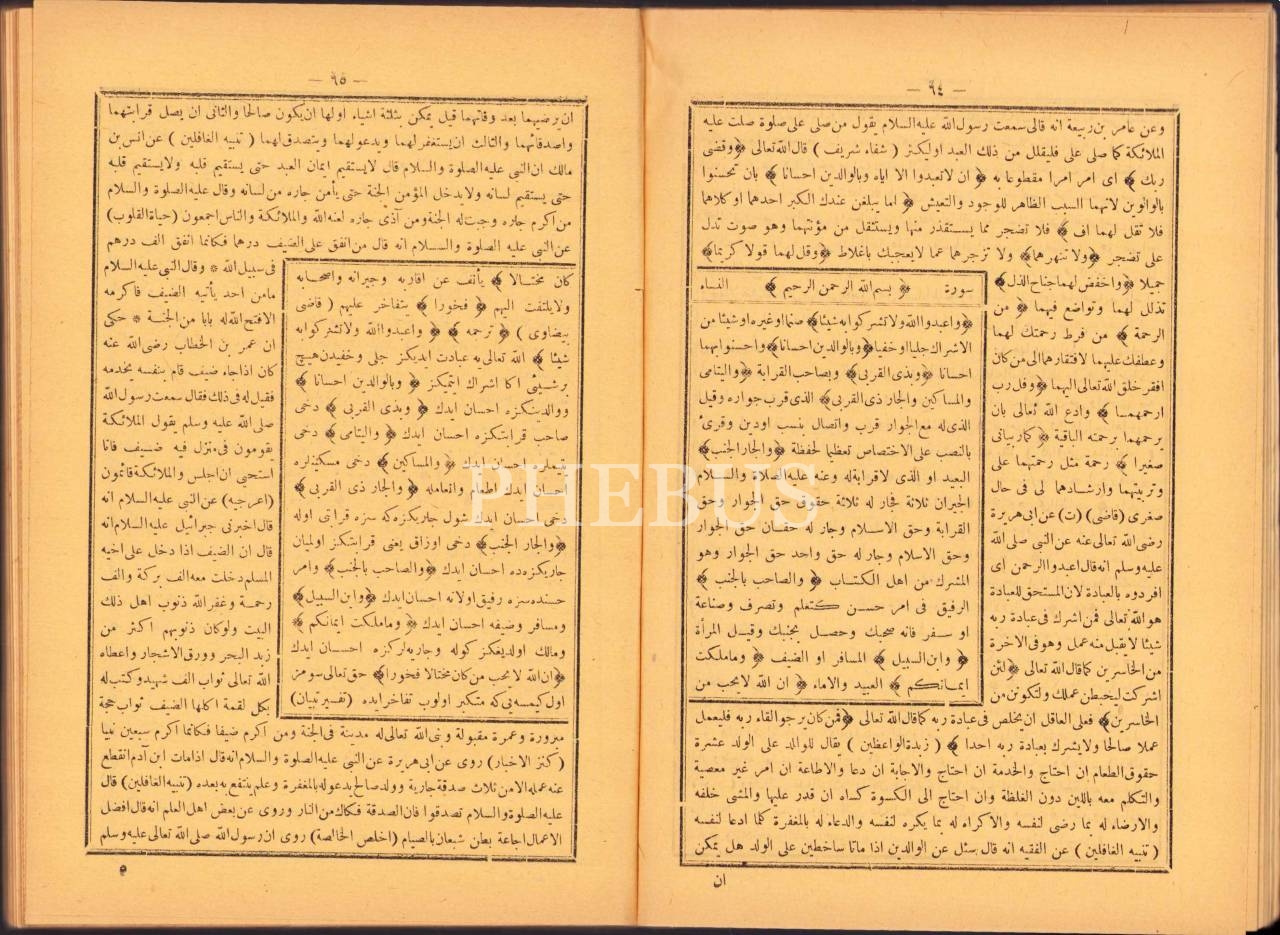 — ٩٤ —
وعن عامر بن ربيعة انه قال سمعت رسول الله عليه السلام يقول من صلى على صلوة صلت عليه
الملائكة كما صلى على فليقلل من ذلك العبد او ليكثر ( شفاء شريف ) قال الله تعالى ﴿ وقضى
ربك ﴾ اى امر امرا مقطوعا به ﴿ ان لا تعبدوا الا اياه وبالوالدين احسانا ﴾ بان تحسنوا
بالوالدين لانهما السبب الظاهر للوجود والتعيش ﴿ اما يبلغن عندك الكبر احدهما او كلاهما
فلا تقل لهما اف ﴾ فلا تضجر مما يستقذر منها ويستثقل من مؤنتهما وهو صوت تدل
على تضجر ﴿ ولا تنهرهما ﴾ ولا تزجرهما عما لا يعجبك باغلاظ ﴿ وقل لهما قولا كريما ﴾
جميلا ﴿ واخفض لهما جناح الذل ﴾
تذلل لهما وتواضع فيهما ﴿ من
الرحمة ﴾ من فرط رحمتك لهما
وعطفك عليهما لافتقارهما الى من كان
افقر خلق الله تعالى اليهما ﴿ وقل رب
ارحمهما ﴾ وادع الله تعالى بان
يرحمهما برحمته الباقية ﴿ كما ربيانى
صغيرا ﴾ رحمة مثل رحمتهما على
وتربيتهما وارشادهما لى فى حال
صغرى (قاضى) (ت) عن ابى هريرة
رضى الله تعالى عنه عن النبى صلى الله
عليه وسلم انه قال اعبدوا الرحمن اى
افردوه بالعبادة لان المستحق للعبادة
هو الله تعالى فمن اشرك فى عبادة ربه
شيئا لا يقبل منه عمل وهو فى الآخرة
من الخاسرين كما قال الله تعالى ﴿ لئن
اشركت ليحبطن عملك ولتكونن من
سورة ﴿ بسم الله الرحمن الرحيم ﴾ النساء
﴿ واعبدوا الله ولا تشركوا به شيئا ﴾ صنما او غيره او شيئا من
الاشراك جليا او خفيا ﴿ وبالوالدين احسانا ﴾ واحسنوا بهما
احسانا ﴿ وبذى القربى ﴾ وبصاحب القرابة ﴿ واليتامى
والمساكين والجار ذى القربى ﴾ الذى قرب جواره وقيل
الذى له مع الجوار قرب واتصال بنسب اودين وقرئ
بالنصب على الاختصاص تعظيما لحفظة ﴿ والجار الجنب ﴾
البعيد او الذى لا قرابة له وعنه عليه الصلاة والسلام
الجيران ثلاثة فجار له ثلاثة حقوق حق الجوار وحق
القرابة وحق الاسلام وجار له حقان حق الجوار
وحق الاسلام وجار له حق واحد حق الجوار وهو
المشرك من اهل الكتاب ﴿ والصاحب بالجنب ﴾
الرفيق فى امر حسن كتعلم وتصرف وصناعة
او سفر فانه صحبك وحصل بجنبك وقيل المرأة
﴿ وابن السبيل ﴾ المسافر او الضيف ﴿ وما ملكت
ايمانكم ﴾ العبيد والاماء ﴿ ان الله لا يحب من
الخاسرين ﴾ فعلى العاقل ان يخلص فى عبادة ربه كما قال الله تعالى ﴿ فمن كان يرجو القاء ربه فليعمل
عملا صالحا ولا يشرك بعبادة ربه احدا ﴾ ( زبدة الواعظين ) يقال للوالد على الولد عشرة
حقوق الطعام ان احتاج والخدمة ان احتاج والاجابة ان دعا والاطاعة ان امر غير معصية
والتكلم معه باللين دون الغلظة وان احتاج الى الكسوة كساه ان قدر عليها والمشى خلفه
والارضاء له بما رضى لنفسه والاكراه له بما يكره لنفسه والدعاء له بالمغفرة كما ادعا لنفسه
( تنبيه الغافلين ) عن الفقيه انه قال سئل عن الوالدين اذا ماتا ساخطين على الولد هل يمكن
ان
— ٩٥ —
ان يرضيهما بعد وفاتهما قيل يمكن بثلثة اشياء اولها ان يكون صالحا والثانى ان يصل قرابتهما
واصدقائهما والثالث ان يستغفر لهما ويدعو لهما ويتصدق لهما ( تنبيه الغافلين ) عن انس بن
مالك ان النبى عليه الصلوة والسلام قال لا يستقيم ايمان العبد حتى يستقيم قلبه ولا يستقيم قلبه
حتى يستقيم لسانه ولا يدخل المؤمن الجنة حتى يأمن جاره من لسانه وقال عليه الصلوة والسلام
من اكرم جاره وجبت له الجنة ومن آذى جاره لعنه الله والملائكة والناس اجمعون (حياة القلوب)
عن النبى عليه الصلوة والسلام انه قال من انفق على الضيف درهما فكانما انفق الف درهم
كان مختالا ﴾ يأنف عن اقاربه وجيرانه واصحابه
ولا يلتفت اليهم ﴿ فخورا ﴾ يتفاخر عليهم ( قاضى
بيضاوى ) ( ترجمه ) ﴿ واعبدوا الله ولا تشركوا به
شيئا ﴾ الله تعالى يه عبادت ايديكز جلى وخفيدن هيچ
برشيئى اكا اشراك ايتميكز ﴿ وبالوالدين احسانا ﴾
ووالدينكزه احسان ايدك ﴿ وبذى القربى ﴾ دخى
صاحب قرابتكزه احسان ايدك ﴿ واليتامى ﴾ دخى
يتيملره احسان ايدك ﴿ والمساكين ﴾ دخى مسكينلره
احسان ايدك اطعام وانعامله ﴿ والجار ذى القربى ﴾
دخى احسان ايدك شول جاريكزه كه سزه قرابتى اوله
﴿ والجار الجنب ﴾ دخى اوزاق يعنى قرابتكز اولميان
جاريكزه ده احسان ايدك ﴿ والصاحب بالجنب ﴾ وامر
حسنده سزه رفيق اولانه احسان ايدك ﴿ وابن السبيل ﴾
ومسافر وضيفه احسان ايدك ﴿ وما ملكت ايمانكم ﴾
ومالك اولديغكز كوله وجاريه لركزه احسان ايدك
﴿ ان الله لا يحب من كان مختالا فخورا ﴾ حق تعالى سومز
اول كيمسه يى كه متكبر اولوب تفاخر ايده (تفسير تبيان)
فى سبيل الله * وقال النبى عليه السلام
مامن احد يأتيه الضيف فاكرمه
الا فتح الله له بابا من الجنة * حكى
ان عمر بن الخطاب رضى الله عنه
كان اذا جاء ضيف قام بنفسه يخدمه
فقيل له فى ذلك فقال سمعت رسول الله
صلى الله عليه وسلم يقول الملائكة
يقومون فى منزل فيه ضيف فانا
استحيى ان اجلس والملائكة قائمون
(اعرجيه) عن النبى عليه السلام انه
قال اخبرنى جبرائيل عليه السلام انه
قال ان الضيف اذا دخل على اخيه
المسلم دخلت معه الف بركة والف
رحمة وغفر الله ذنوب اهل ذلك
البيت ولو كان ذنوبهم اكثر من
زبد البحر وورق الاشجار واعطاه
الله تعالى ثواب الف شهيد وكتب له
بكل لقمة اكلها الضيف ثواب حجة
مبرورة وعمرة مقبولة وبنى الله تعالى له مدينة فى الجنة ومن اكرم ضيفا فكانما اكرم سبعين نبيا
(كنز الاخبار) روى عن ابى هريرة عن النبى عليه الصلوة والسلام انه قال اذا مات ابن آدم انقطع
عنه عمله الا من ثلاث صدقة جارية وولد صالح يدعو له بالمغفرة وعلم ينتفع به بعده (تنبيه الغافلين) قال
عليه الصلوة والسلام تصدقوا فان الصدقة فكاك من النار وروى عن بعض اهل العلم انه قال افضل
الاعمال اجاعة بطن شبعان بالصيام (اخلص الخالصة) روى ان رسول الله صلى الله تعالى عليه وسلم
٩
PHEBUS